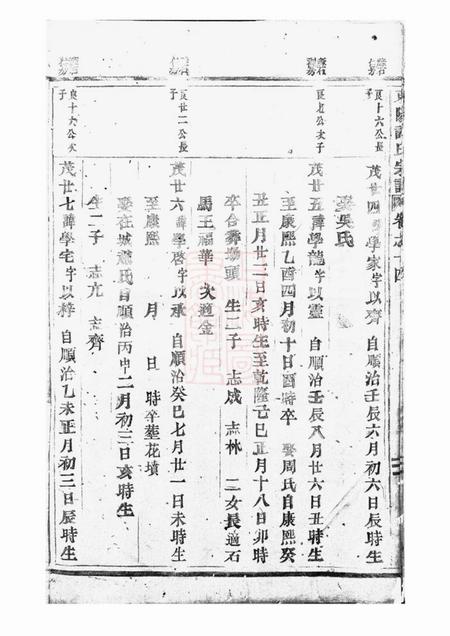 東陽氏宗譜卷之十四
良十六公長子
茂廿四諱學家字以齊 自順治壬辰六月初六日辰時生
娶吳氏
良七公次子
茂廿五諱學龍字以靈 自順治壬辰八月廿六日丑時生
至康熙乙酉四月初十日酉時卒 娶周氏自康熙癸
丑正月廿二日亥時生至乾隆己巳正月十八日卯時
卒合葬塲頭 生二子 志成 志林 二女長適石
馬王福華 次適金
良廿二公長子
茂廿六諱學啓字以承 自順治癸巳七月廿一日未時生
至康熙 月 日 時卒葬花墳
娶在城氏自順治丙申二月初三日亥時生
生二子 志亢 志齊
良十六公次子
茂廿七諱學宅字以梓 自順治乙未正月初三日辰時生